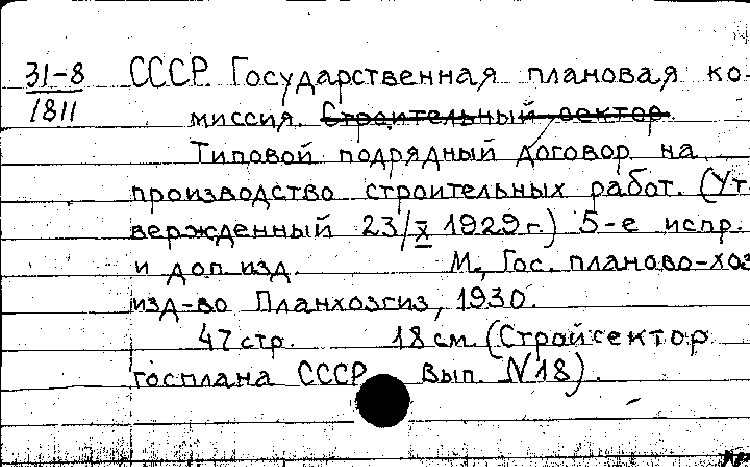 31-8 СССР. Государственная плановая ко-
1811 миссия. Строительный сектор.
Типовой подрядный договор на
производство строительных работ. (Ут-
вержденный 23/X 1929 г.) 5-е испр.
и доп. изд. М., Гос. планово-хоз.
изд-во Планхозгиз, 1930.
47 стр. 18 см. (Стройсектор
госплана СССР. Вып. N18).